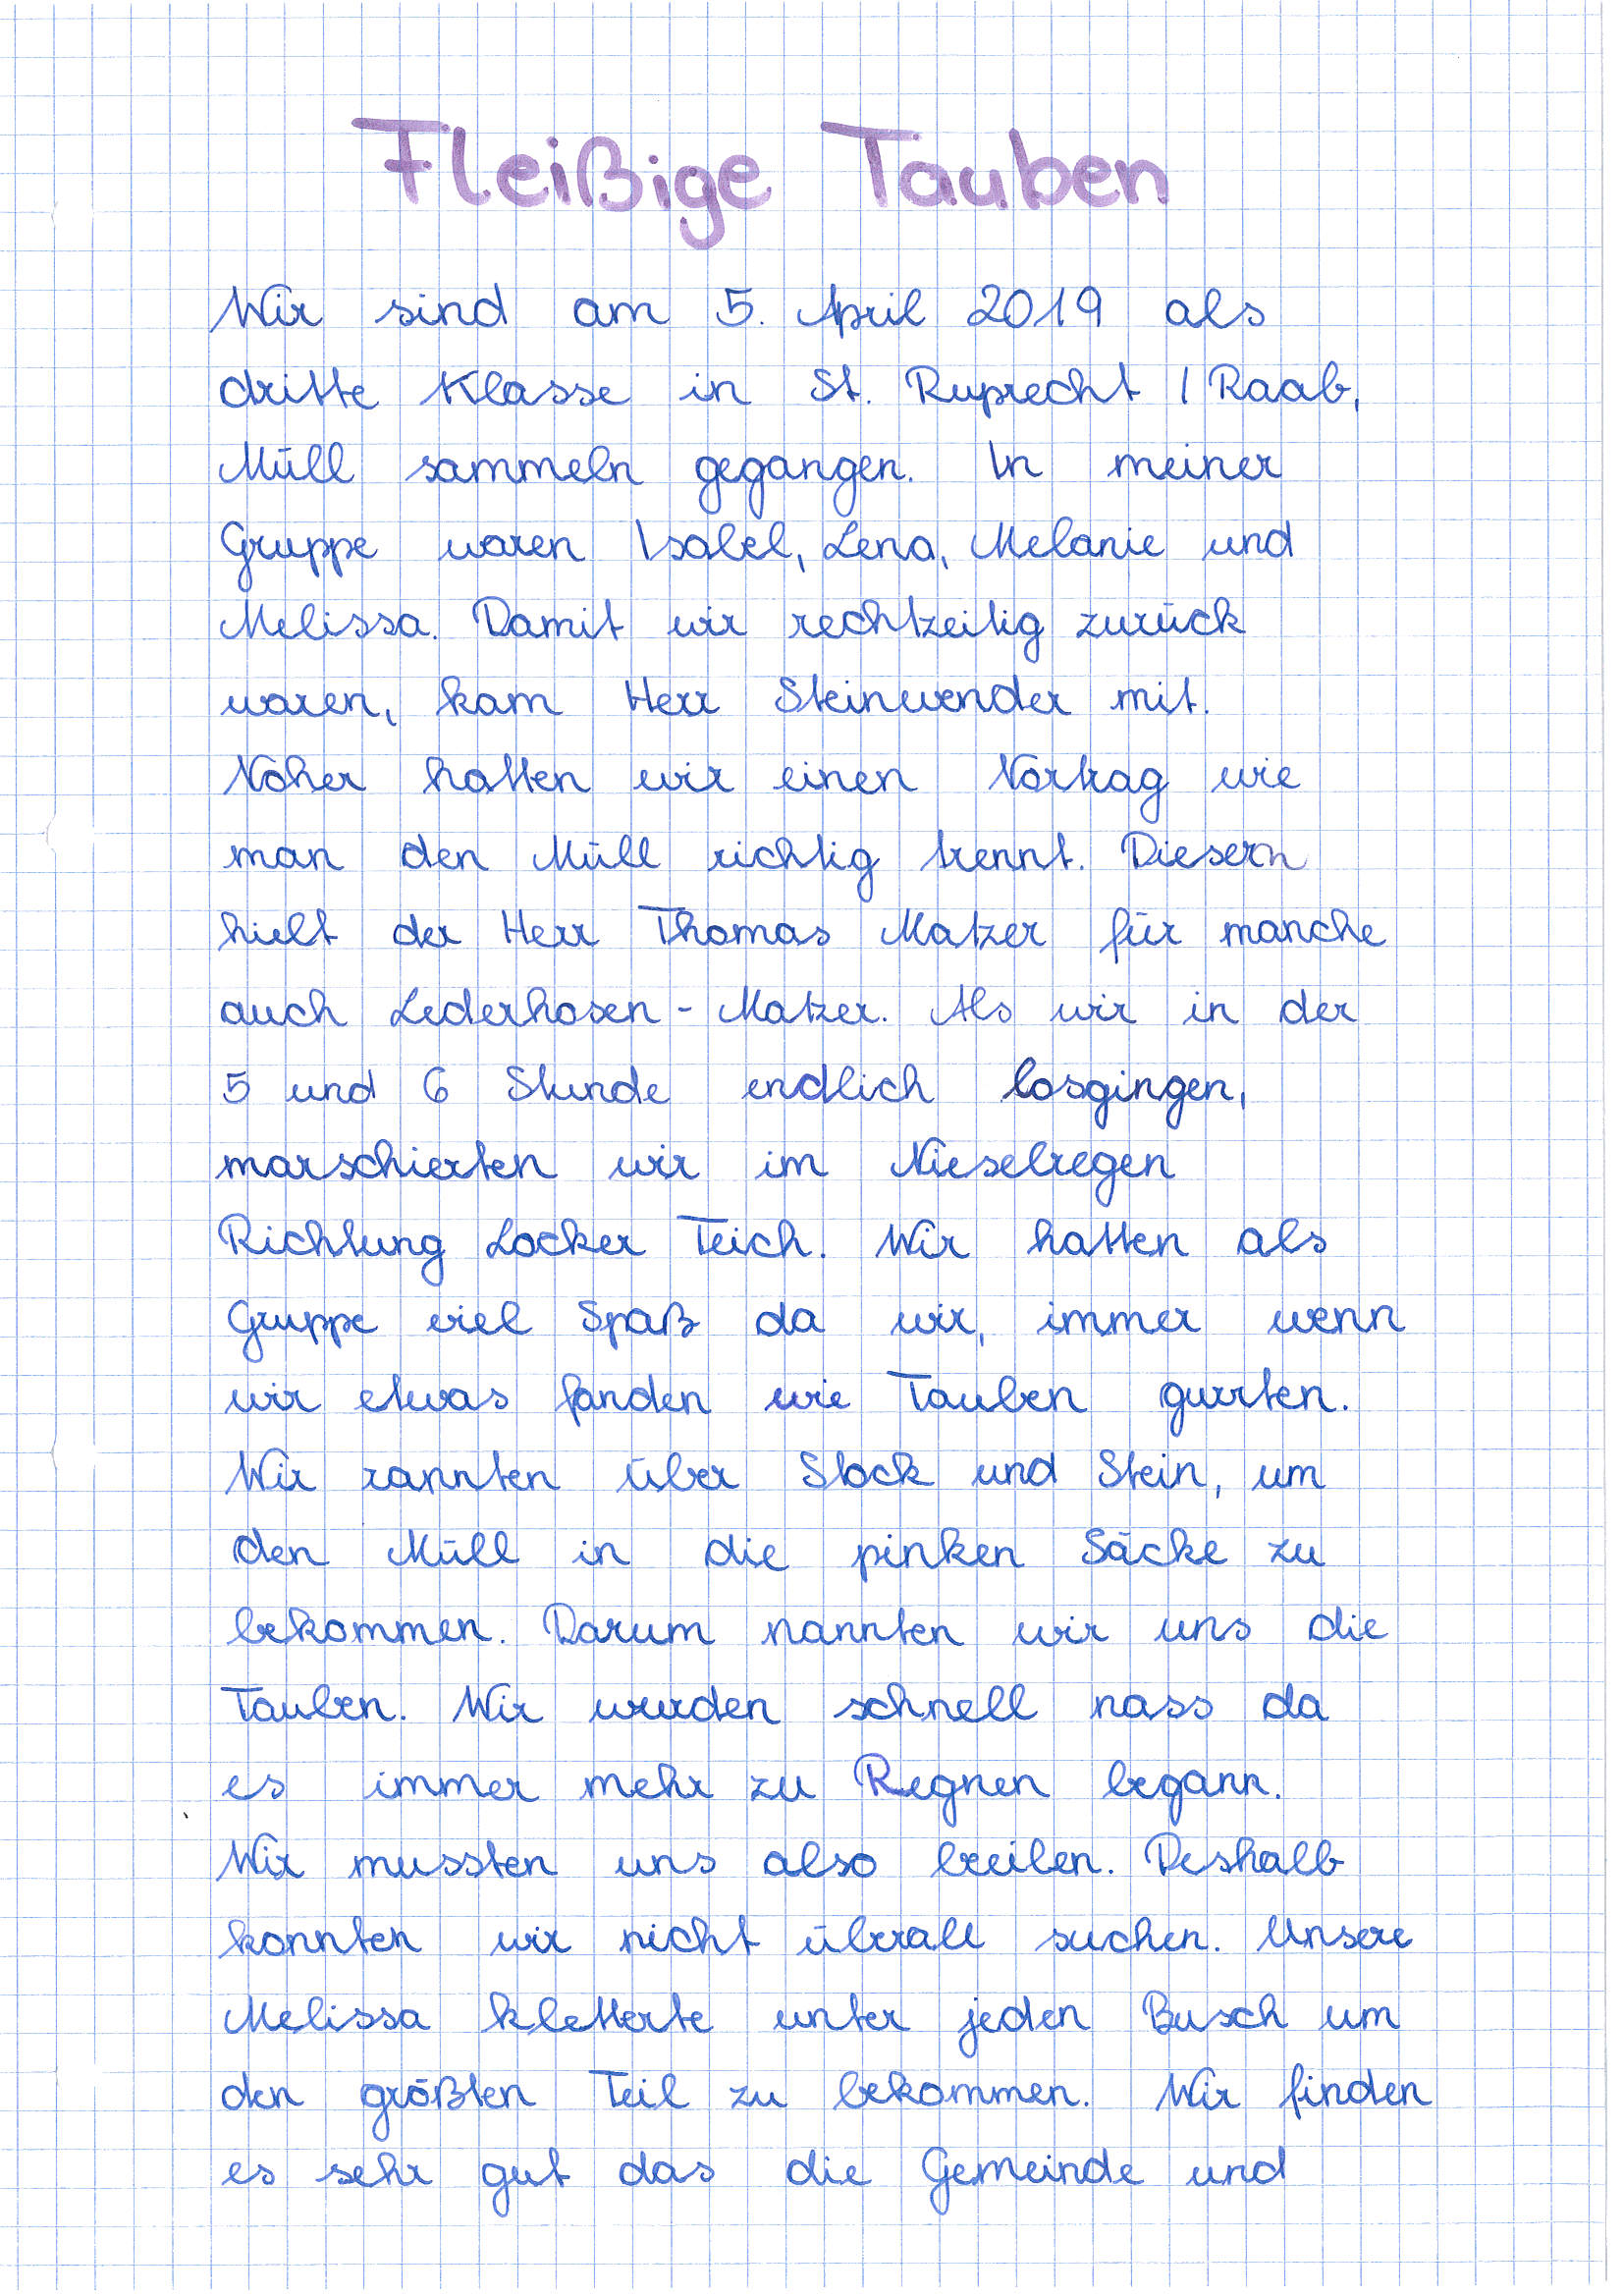 Fleißige Tauben
Wir sind am 5. April 2019 als
dritte Klasse in St. Ruprecht / Raab,
Müll sammeln gegangen. In meiner
Gruppe waren Isabel, Lena, Melanie und
Melissa. Damit wir rechtzeitig zurück
waren, kam Herr Steinwender mit.
Voher hatten wir einen Vortrag wie
man den Müll richtig trennt. Diesern
hielt der Herr Thomas Matzer für manche
auch Lederhosen - Matzer. Als wir in der
5 und 6 Stunde endlich losgingen,
marschierten wir im Nieselregen
Richtung Locker Teich. Wir hatten als
Gruppe viel Spaß da wir, immer wenn
wir etwas fanden wie Tauben gurrten.
Wir rannten über Stock und Stein, um
den Müll in die pinken Säcke zu
bekommen. Darum nannten wir uns die
Tauben. Wir wurden schnell nass da
es immer mehr zu Regnen begann.
Wir mussten uns also beeilen. Deshalb
konnten wir nicht überall suchen. Unsere
Melissa kletterte unter jeden Busch um
den größten Teil zu bekommen. Wir finden
es sehr gut das die Gemeinde und